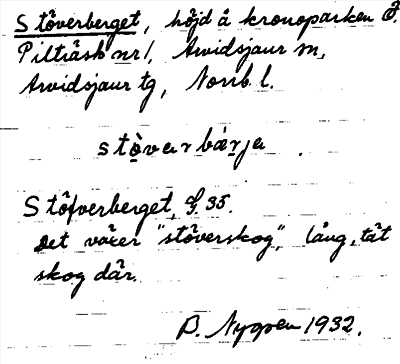 Stöverberget, höjd å kronoparken Ö.
Pilträsk nr 1, Arvidsjaur sn,
Arvidsjaur tg, Norrb. l.
stòvarbárja.
Stöfverberget, G 35.
Det växer "stöverskog", lång, tät
skog där.
D. Nygren 1932.